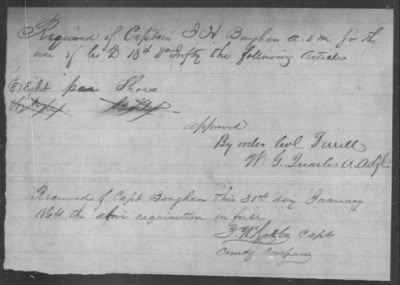 Required of Captain J H Bingham A.Q.M. for the
use of Co D 13th Va Infty the following Articles
(8) Eight pair Shoes
approved
By order Col Terrill
W. G. Quarles A. Adjt
Received of Capt Bingham this 31st day January
1864 the above requisition in full
Capt
Comdg Company